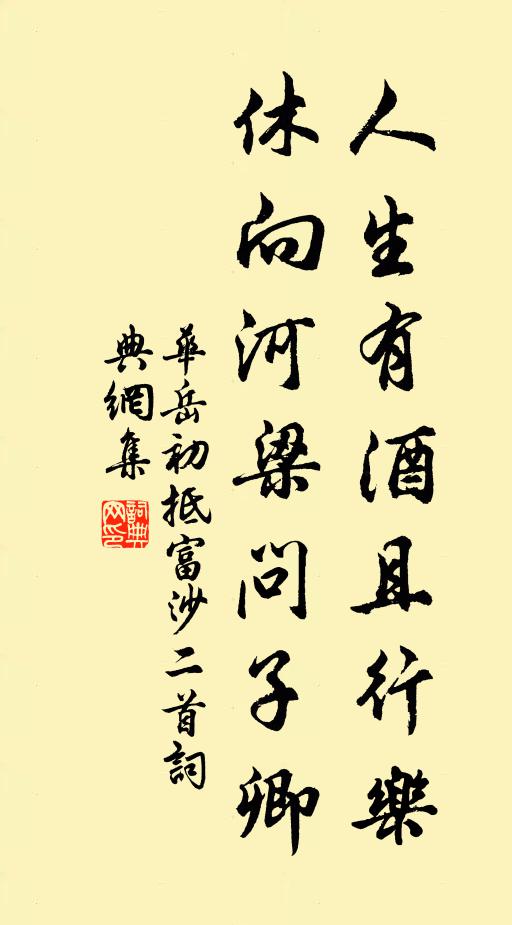 人生有酒且行樂
休向河梁問子卿
華岳初抵富沙二首詞
典網集
詞典
网印